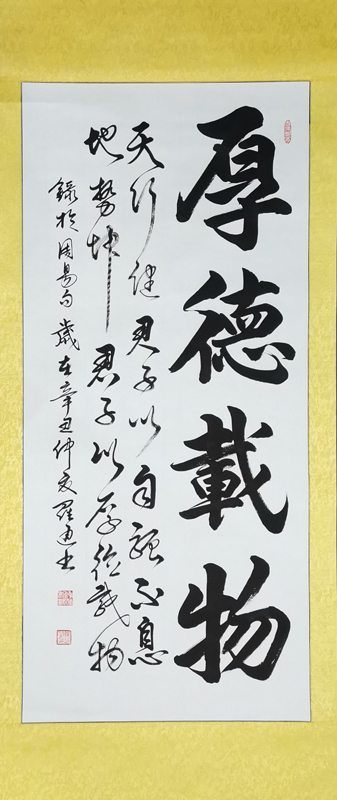 厚德載物
天行健君子以自强不息
地勢坤君子以厚德載物
錄於周易句歲在辛丑仲夏羅迪书